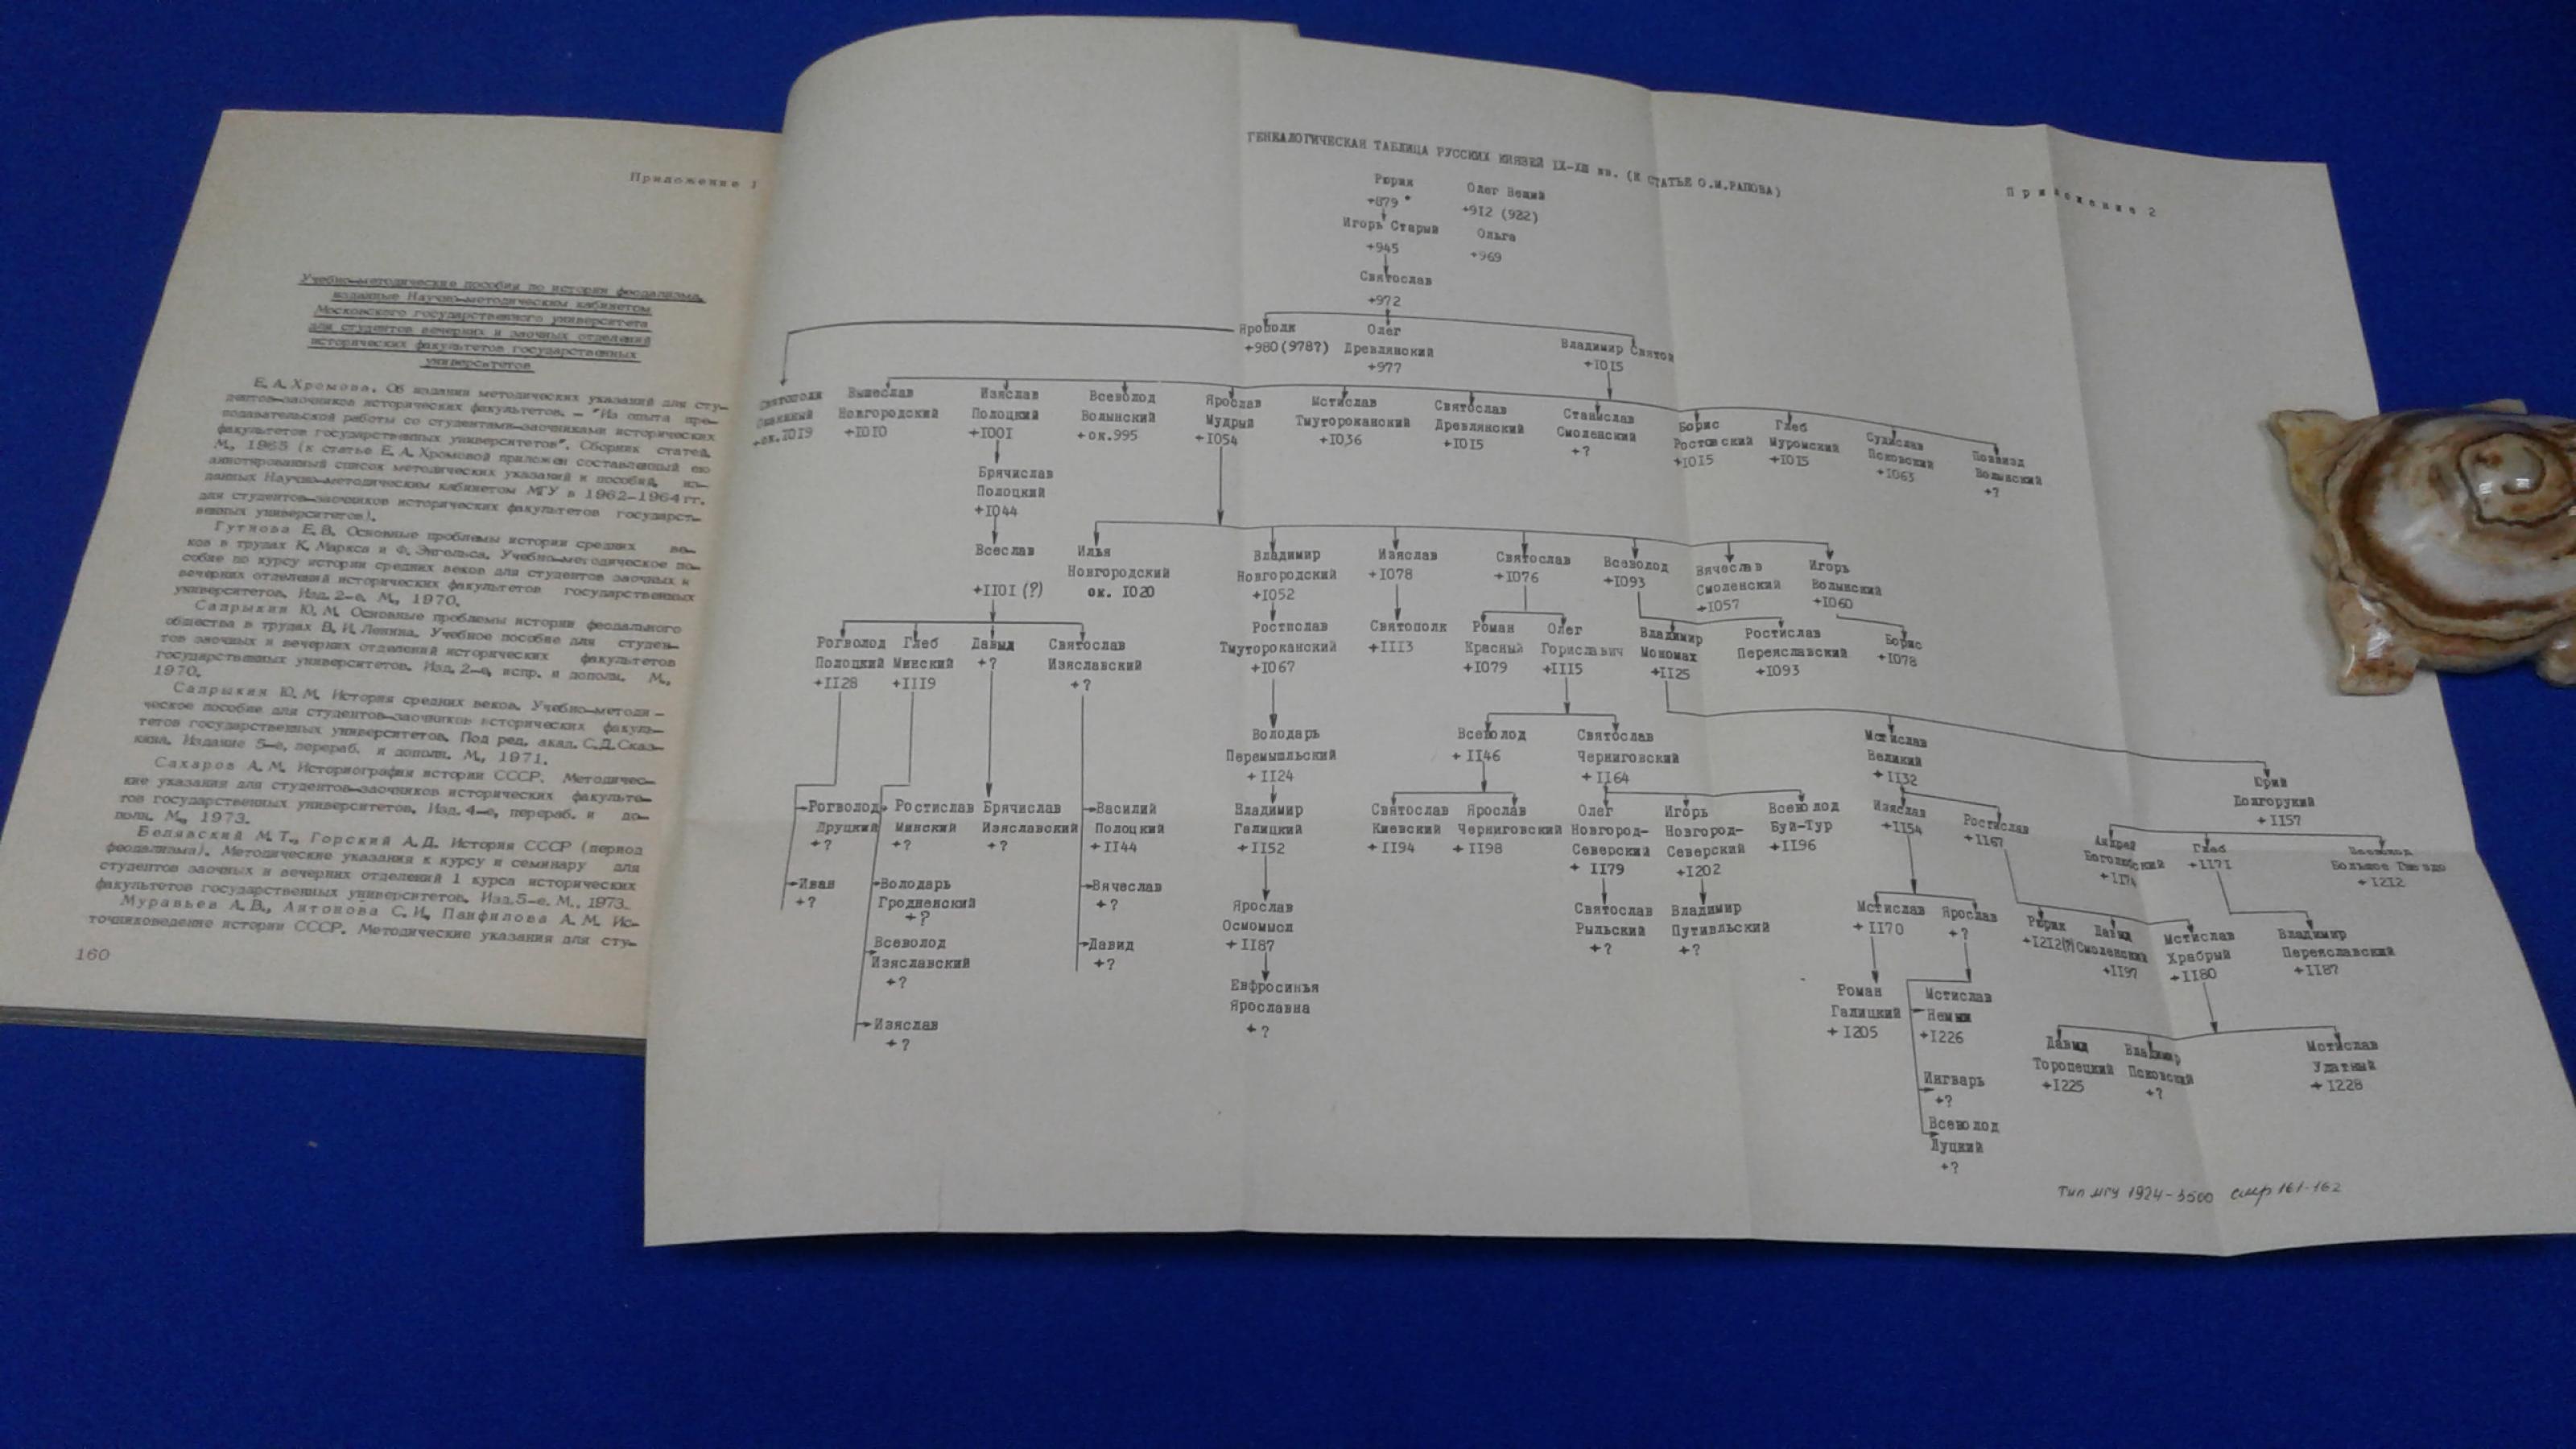 Приложение 1
Учебно-методические пособия по истории феодализма,
изданные Научно-методическим кабинетом
Московского государственного университета
для студентов вечерних и заочных отделений
исторических факультетов государственных
университетов
Е. А. Хромова. Об издании методических указаний для сту-
дентов-заочников исторических факультетов. – "Из опыта пре-
подавательской работы со студентами-заочниками исторических
факультетов государственных университетов". Сборник статей.
М., 1965 (к статье Е. А. Хромовой приложен составленный ею
аннотированный список методических указаний и пособий, из-
данных Научно-методическим кабинетом МГУ в 1962-1964 гг.
для студентов-заочников исторических факультетов государст-
венных университетов).
Гутнова Е. В. Основные проблемы истории средних ве-
ков в трудах К. Маркса и Ф. Энгельса. Учебно-методическое по-
собие по курсу истории средних веков для студентов заочных и
вечерних отделений исторических факультетов государственных
университетов. Изд. 2-е. М., 1970.
Сапрыкин Ю. М. Основные проблемы истории феодального
общества в трудах В. И. Ленина. Учебное пособие для студен-
тов заочных и вечерних отделений исторических факультетов
государственных университетов. Изд. 2-е, испр. и дополн. М.,
1970.
Сапрыкин Ю. М. История средних веков. Учебно-методи-
ческое пособие для студентов-заочников исторических факуль-
тетов государственных университетов. Под ред. акад. С. Д. Сказ-
кина. Издание 5-е, перераб. и дополн. М., 1971.
Сахаров А. М. Историография истории СССР. Методичес-
кие указания для студентов-заочников исторических факульте-
тов государственных университетов. Изд. 4-е, перераб. и до-
полн. М., 1973.
Белявский М. Т., Горский А. Д. История СССР (период
феодализма). Методические указания к курсу и семинару для
студентов заочных и вечерних отделений 1 курса исторических
факультетов государственных университетов. Изд. 5-е. М., 1973.
Муравьев А. В., Антонова С. И., Панфилова А. М. Ис-
точниковедение истории СССР. Методические указания для сту-
160
ГЕНЕАЛОГИЧЕСКАЯ ТАБЛИЦА РУССКИХ КНЯЗЕЙ IX-XIII вв. (К СТАТЬЕ О.М.РАПОВА)
Приложение 2
Рюрик Олег Вещий
+879 +912 (922)
Игорь Старый Ольга
+945 +969
Святослав
+972
Ярополк Олег Владимир Святой
+980(978?) Древлянский +1015
+977
Святополк Вышеслав Изяслав Всеволод Ярослав Мстислав Святослав Станислав Борис Глеб Судислав Позвизд
Окаянный Новгородский Полоцкий Волынский Мудрый Тмутороканский Древлянский Смоленский Ростовский Муромский Псковский Волынский
+ок.1019 +1010 +1001 +ок.995 +1054 +1036 +1015 +? +1015 +1015 +1063 +?
Брячислав
Полоцкий
+1044
Всеслав Илья Владимир Изяслав Святослав Всеволод Вячеслав Игорь
+1101(?) Новгородский Новгородский +1078 +1076 +1093 Смоленский Волынский
ок. 1020 +1052 +1057 +1060
Рогволод Глеб Давыд Святослав Ростислав Святополк Роман Олег Владимир Ростислав Борис
Полоцкий Минский +? Изяславский Тмутороканский +1113 Красный Гориславич Мономах Переяславский +1078
+1128 +1119 +? +1067 +1079 +1115 +1125 +1093
Володарь Всеволод Святослав Мстислав Юрий
Перемышльский +1146 Черниговский Великий Долгорукий
+1124 +1164 +1132 +1157
Рогволод Ростислав Брячислав Василий Владимир Святослав Ярослав Олег Игорь Всеволод Изяслав Ростислав Андрей Глеб Всеволод
Друцкий Минский Изяславский Полоцкий Галицкий Киевский Черниговский Новгород- Новгород- Буй-Тур +1154 +1167 Боголюбский +1171 Большое Гнездо
+? +? +? +1144 +1152 +1194 +1198 Северский Северский +1196 +1174 +1212
+1179 +1202
Иван Володарь Вячеслав Ярослав Святослав Владимир Мстислав Ярослав Рюрик Давид Мстислав Владимир
+? Гродненский +? Осмомысл Рыльский Путивльский +1170 +? +1212(?) Смоленский Храбрый Переяславский
+? +1187 +? +? +1197 +1180 +1187
Всеволод Давид
Изяславский +?
+?
Евфросинья Роман Мстислав
Ярославна Галицкий Немой
+? +1205 +1226
Изяслав
+?
Давыд Владимир Мстислав
Торопецкий Псковский Удатный
+1225 +? +1228
Ингварь
+?
Всеволод
Луцкий
+?
Тип МГУ 1924-3500 стр 161-162